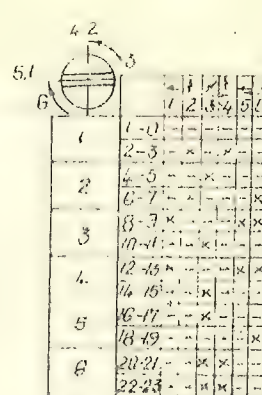 4 2
3
5,1
6
1 2 3 4 5
1 1-0
2-3
2 4-5
6-7
3 8-9
10-11
4 12-13
14 15
5 16-17
18-19
6 20-21
22-23